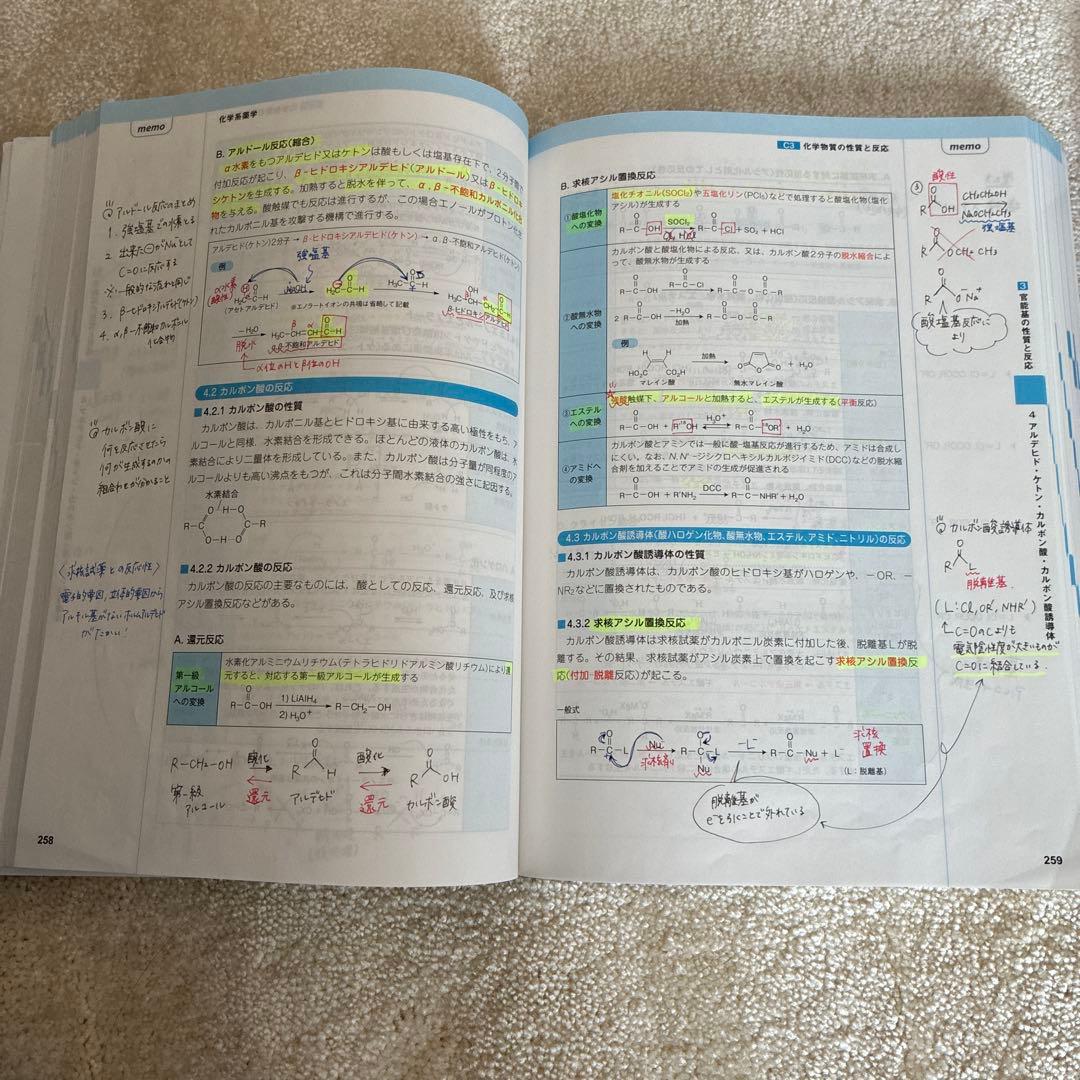 memo
化学系薬学
B. アルドール反応(縮合)
α水素をもつアルデヒド又はケトンは酸もしくは塩基存在下で，2分子間で
付加反応が起こり，β-ヒドロキシアルデヒド(アルドール)又はβ-ヒドロキ
シケトンを生成する。加熱すると脱水を伴って，α,β-不飽和カルボニル化合
物を与える。酸触媒でも反応は進行するが，この場合エノールがプロトン化さ
れたカルボニル基を攻撃する機構で進行する。
アルデヒド(ケトン)2分子 → β-ヒドロキシアルデヒド(ケトン) → α,β-不飽和アルデヒド(ケトン)
例
強塩基
α水素
(酸性)
NaOH
(アセトアルデヒド)
※エノラートイオンの共鳴は省略して記載
β-ヒドロキシアルデヒド
−H₂O
脱水
α,β-不飽和アルデヒド
α位のHとβ位のOH
アルドール反応のまとめ
1. 強塩基でα水素とる
2. 出来た⊖がNuとして
C=Oに反応する
3. β-ヒドロキシアルデヒド(ケトン)
4. α,β-不飽和カルボニル
化合物
4.2 カルボン酸の反応
■4.2.1 カルボン酸の性質
カルボン酸は，カルボニル基とヒドロキシ基に由来する高い極性をもち，ア
ルコールと同様，水素結合を形成できる。ほとんどの液体のカルボン酸は，水
素結合により二量体を形成している。また，カルボン酸は分子量が同程度のア
ルコールよりも高い沸点をもつが，これは分子間水素結合の強さに起因する。
水素結合
カルボン酸に
何を反応させたら
何が生成するのかの
組合わせが分かること
■4.2.2 カルボン酸の反応
カルボン酸の反応の主要なものには，酸としての反応，還元反応，及び求核
アシル置換反応などがある。
〈求核試薬との反応性〉
電子的要因，立体的要因から
アルキル基がないホルムアルデヒド
が
A. 還元反応
第一級
アルコール
への変換
水素化アルミニウムリチウム(テトラヒドリドアルミン酸リチウム)により還
元すると，対応する第一級アルコールが生成する
R−C−OH 1) LiAlH₄ 2) H₃O⁺ R−CH₂−OH
R−CH₂−OH 酸化 還元 R H 酸化 還元 R OH
第一級
アルコール
アルデヒド
カルボン酸
258
C3 化学物質の性質と反応
memo
B. 求核アシル置換反応
①酸塩化物
への変換
塩化チオニル(SOCl₂)や五塩化リン(PCl₅)などで処理すると酸塩化物(塩化
アシル)が生成する
R−C−OH SOCl₂ R−C−Cl + SO₂ + HCl
②酸無水物
への変換
カルボン酸と酸塩化物による反応，又は，カルボン酸2分子の脱水縮合によ
って，酸無水物が生成する
R−C−OH + R−C−Cl → R−C−O−C−R
2 R−C−OH −H₂O 加熱 R−C−O−C−R
例
HO₂C CO₂H
加熱
+ H₂O
マレイン酸
無水マレイン酸
③エステル
への変換
強酸触媒下，アルコールと加熱すると，エステルが生成する(平衡反応)
R−C−OH + R'¹⁸OH H₃O⁺ R−C−¹⁸OR' + H₂O
④アミドへ
の変換
カルボン酸とアミンでは一般に酸-塩基反応が進行するため，アミドは合成し
にくい。なお，N, N'-ジシクロヘキシルカルボジイミド(DCC)などの脱水縮
合剤を加えることでアミドの生成が促進される
R−C−OH + R'NH₂ DCC R−C−NHR' + H₂O
③
酸性
CH₃CH₂OH
NaOCH₂CH₃
強塩基
OCH₂CH₃
O⁻Na⁺
酸塩基反応に
より
3
官能基の性質と反応
4 アルデヒド・ケトン・カルボン酸・カルボン酸誘導体
4.3 カルボン酸誘導体(酸ハロゲン化物，酸無水物，エステル，アミド，ニトリル)の反応
■4.3.1 カルボン酸誘導体の性質
カルボン酸誘導体は，カルボン酸のヒドロキシ基がハロゲンや，−OR，−
NR₂などに置換されたものである。
■4.3.2 求核アシル置換反応
カルボン酸誘導体は求核試薬がカルボニル炭素に付加した後，脱離基Lが脱
離する。その結果，求核試薬がアシル炭素上で置換を起こす求核アシル置換反
応(付加-脱離反応)が起こる。
一般式
R−C−L Nu⁻ R−C−L −L⁻ R−C−Nu + L⁻
求核
置換
(L：脱離基)
脱離基が
e⁻を引くことで外れている
カルボン酸誘導体
脱離基
(L：Cl, OR', NHR')
C=OのCよりも
電気陰性度が大きいものが
C=Oに結合している。
259